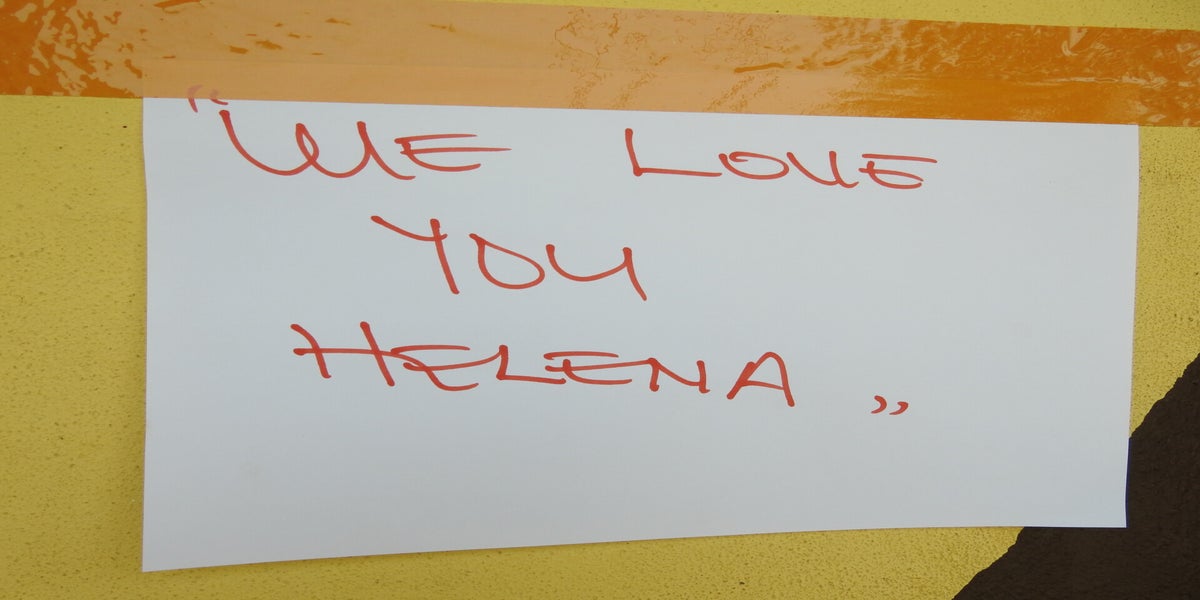 "WE LOVE
YOU
HELENA „